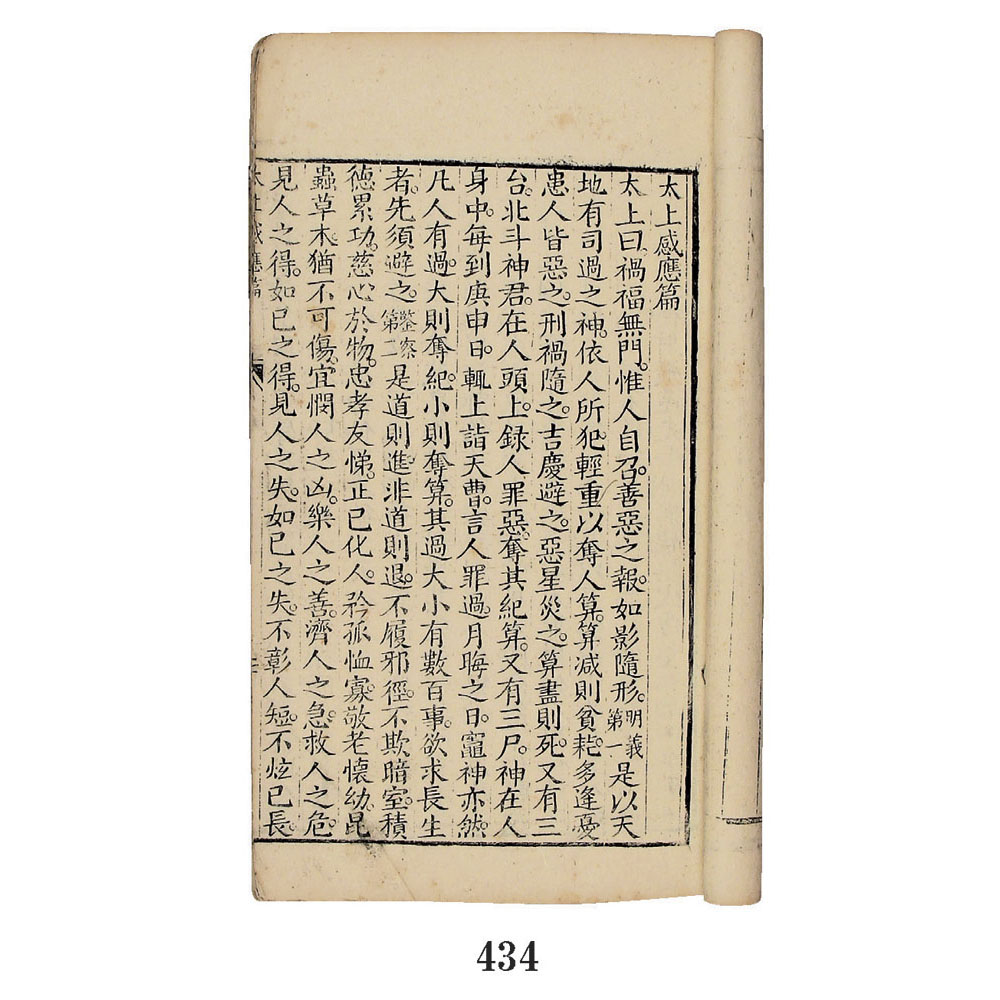 太上感應篇
太上曰。禍福無門。惟人自召。善惡之報。如影隨形。明義第一是以天
地有司過之神。依人所犯輕重以奪人算。算減則貧耗多逢憂
患人皆惡之刑禍隨之。吉慶避之。惡星災之。算盡則死。又有三
台。北斗神君。在人頭上。録人罪惡。奪其紀算。又有三尸。神在人
身中。每到庚申日。輒上詣天曹。言人罪過。月晦之日。竈神亦然。
凡人有過。大則奪紀。小則奪算。其過大小有數百事。欲求長生
者。先須避之。鑒察第二是道則進。非道則退。不履邪徑。不欺暗室。積
德累功。慈心於物。忠孝友悌。正己化人。矜孤恤寡。敬老懷幼。昆
蟲草木。猶不可傷。宜憫人之凶。樂人之善。濟人之急。救人之危
見人之得。如己之得。見人之失。如己之失。不彰人短。不炫己長。
太上感應篇
434